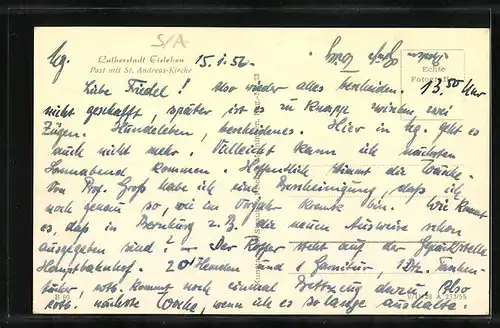 S/A
Lutherstadt Eisleben
Post mit St. Andreas-Kirche
Hg. 15.1.56.
Echte
Fotografie
13.50 Uhr
Liebe Friedel! Also wieder alles bescheiden.
nicht geschafft, später ist es zu knapp zwischen zwei
Zügen. Hundeleben, bescheidenes. Hier in Hg. geht es
auch nicht mehr. Vielleicht kann ich nächsten
Sonnabend kommen. Hoffentlich stimmt die Wäsche.
Von Prof. Groß habe ich eine Bescheinigung, daß ich
noch genau so, wie im Vorjahr krank bin. Wie kommt
es, daß in Bernburg z. B. die neuen Ausweise schon
ausgegeben sind? – Der Koffer steht auf der Gepäckstelle
Hauptbahnhof. 20 Hemden und 1 Garnitur, 1 Dtz. Taschen-
tücher, evtl. kommt noch einmal Bettzeug dazu. Also
evtl. nächste Woche, wenn ich es so lange aushalte.
B 89
V/11/28 A 233/55